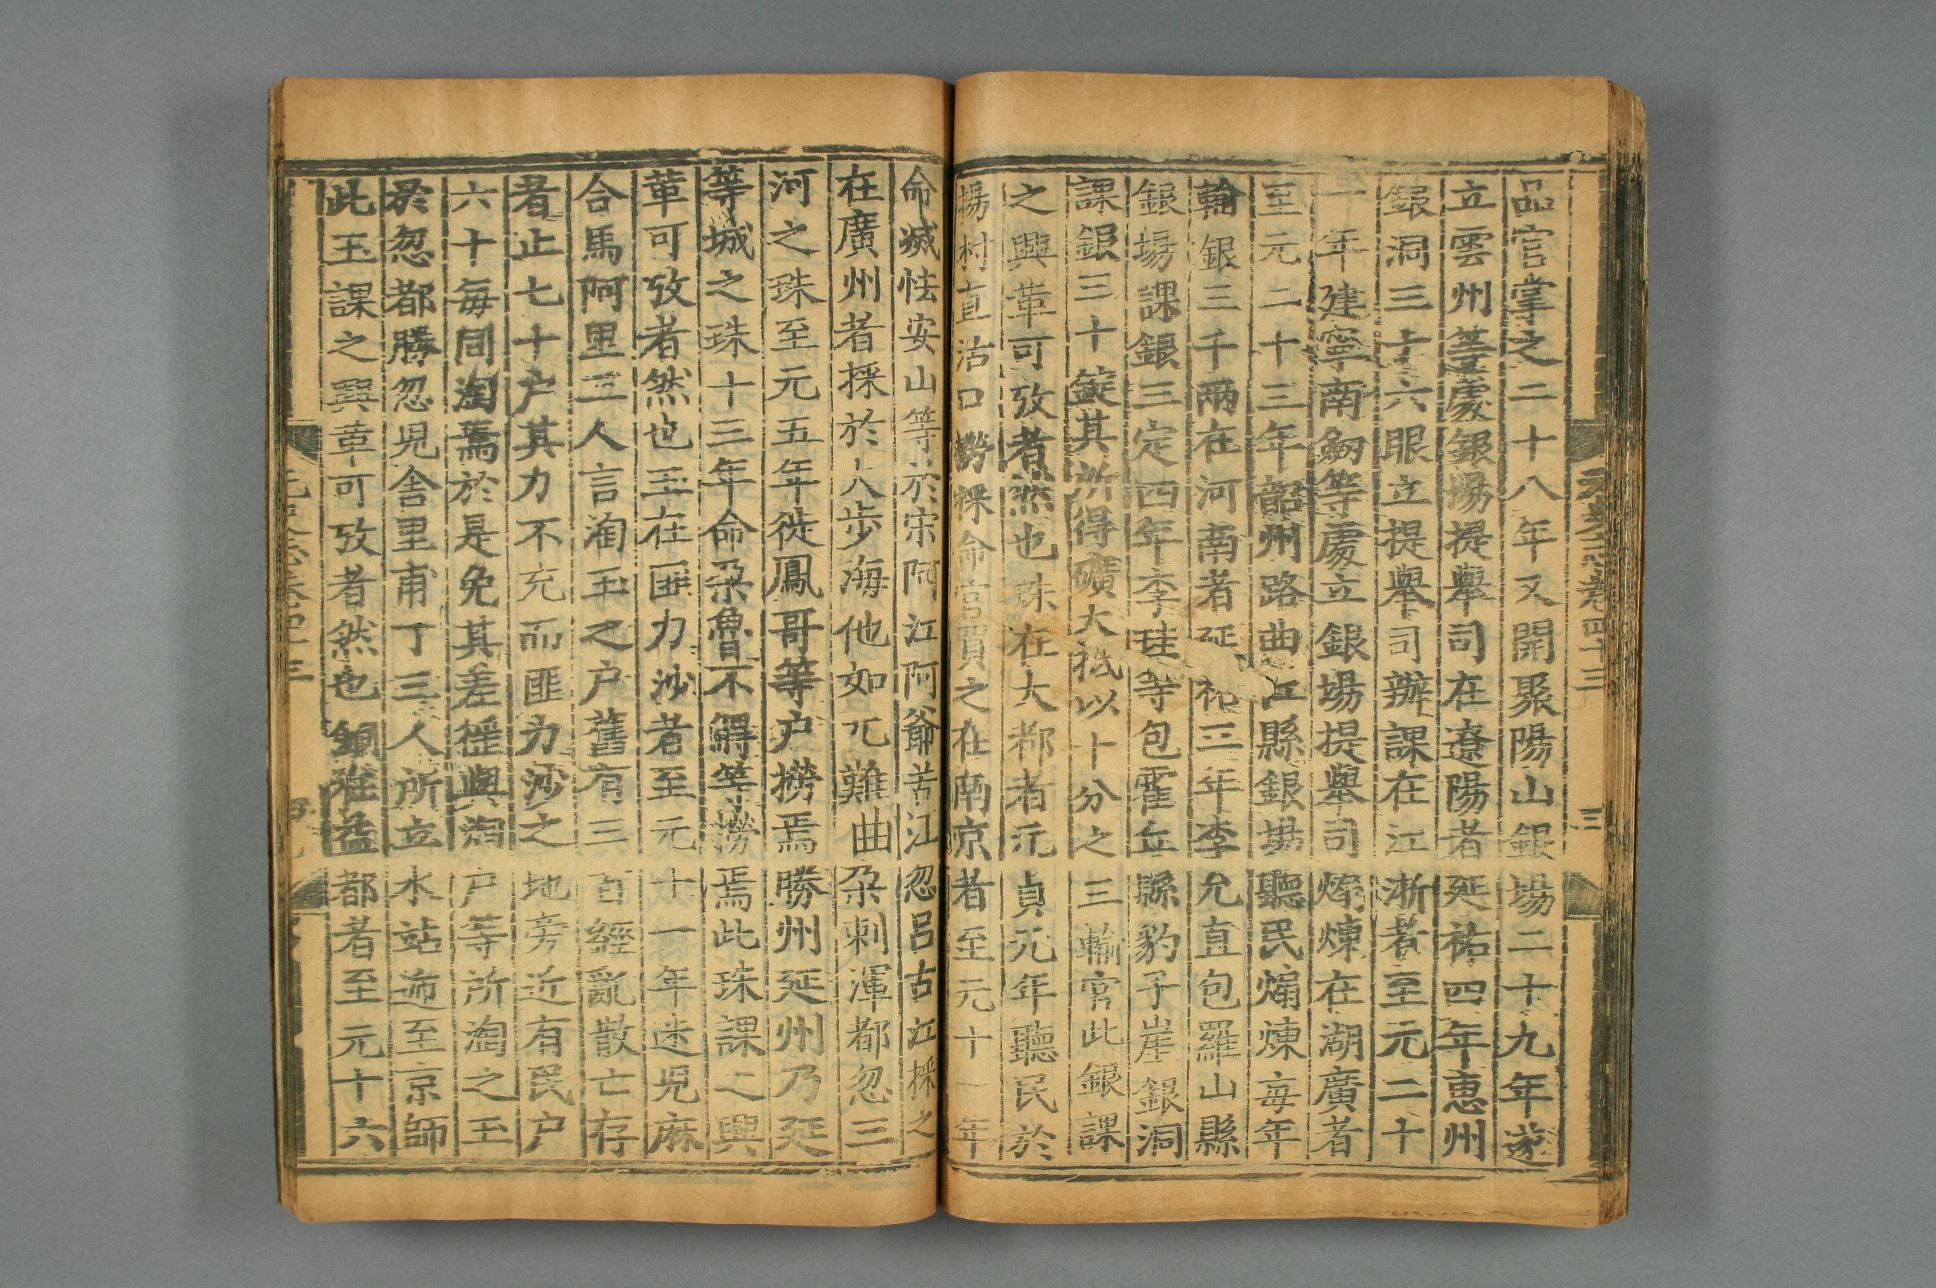 品官掌之二十八年又開聚陽山銀場二十九年遂
立雲州等處銀場提舉司在遼陽者延祐四年惠州
銀洞三十六眼立提舉司辦課在江浙者至元二十
一年建寧南劒等處立銀場提舉司煽煉在湖廣者
至元二十三年韶州路曲江縣銀場聽民煽煉每年
輸銀三千兩在河南者延祐三年李允直包羅山縣
銀場課銀三定四年李珪等包霍丘縣豹子崖銀洞
課銀三十錠其所得礦大抵以十分之三輸官此銀課
之興革可攷者然也珠在大都者元貞元年聽民於
楊村直沽口撈採命官買之在南京者至元十一年
命滅怯安山等於宋阿江阿爺苦江忽呂古江採之
在廣州者採於大步海他如兀難曲朵剌渾都忽三
河之珠至元五年徙鳳哥等户撈焉勝州延州乃延
等城之珠十三年命朵魯不䚟等撈焉此珠課之興
革可攷者然也玉在匪力沙者至元十一年迷児麻
合馬阿里三人言淘玉之户舊有三百經亂散亡存
者止七十户其力不充而匪力沙之地旁近有民户
六十每同淘焉於是免其差徭與淘户等所淘之玉
於忽都勝忽児舍里甫丁三人所立水站逓至京師
此玉課之興革可攷者然也銅在益都者至元十六
元史志卷四十三
三